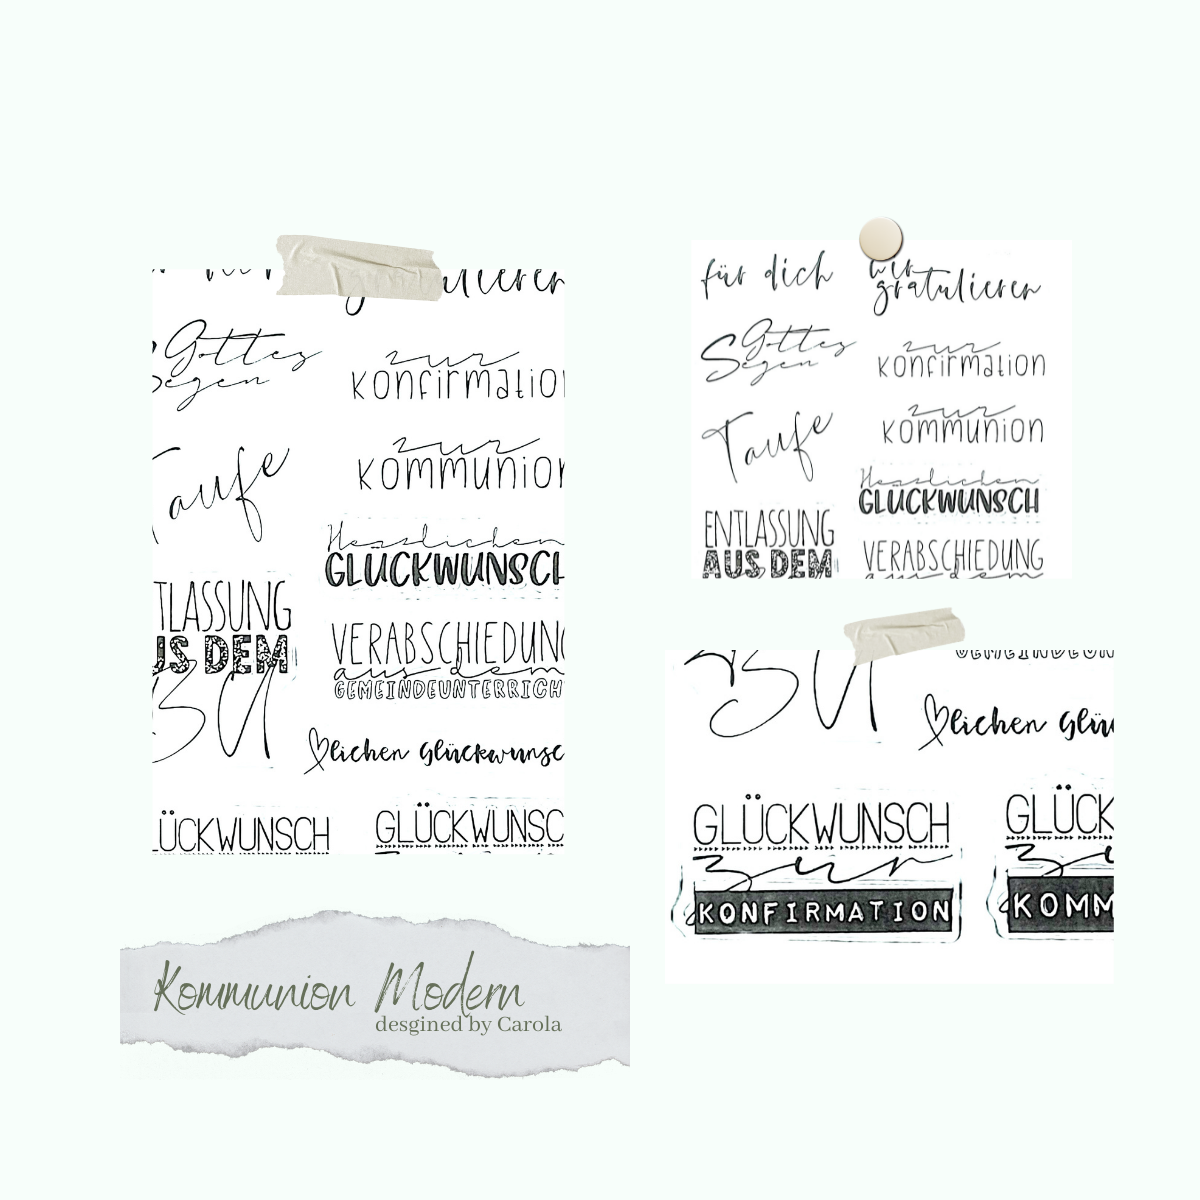 Gottes
Segen
zur
Konfirmation
Taufe
zur
Kommunion
Herzlichen
GLÜCKWUNSCH
TLASSUNG
US DEM
BU
VERABSCHIEDUNG
aus dem
GEMEINDEUNTERRICH
lichen Glückwunsc
LÜCKWUNSCH
GLÜCKWUNSC
für dich
wir
gratulieren
Gottes
Segen
zur
Konfirmation
Taufe
zur
Kommunion
Herzlichen
GLÜCKWUNSCH
ENTLASSUNG
AUS DEM
VERABSCHIEDUNG
aus dem
BU
GEMEINDEUN
lichen Glüc
GLÜCKWUNSCH
zur
KONFIRMATION
GLÜCK
zu
KOMM
Kommunion Modern
desgined by Carola